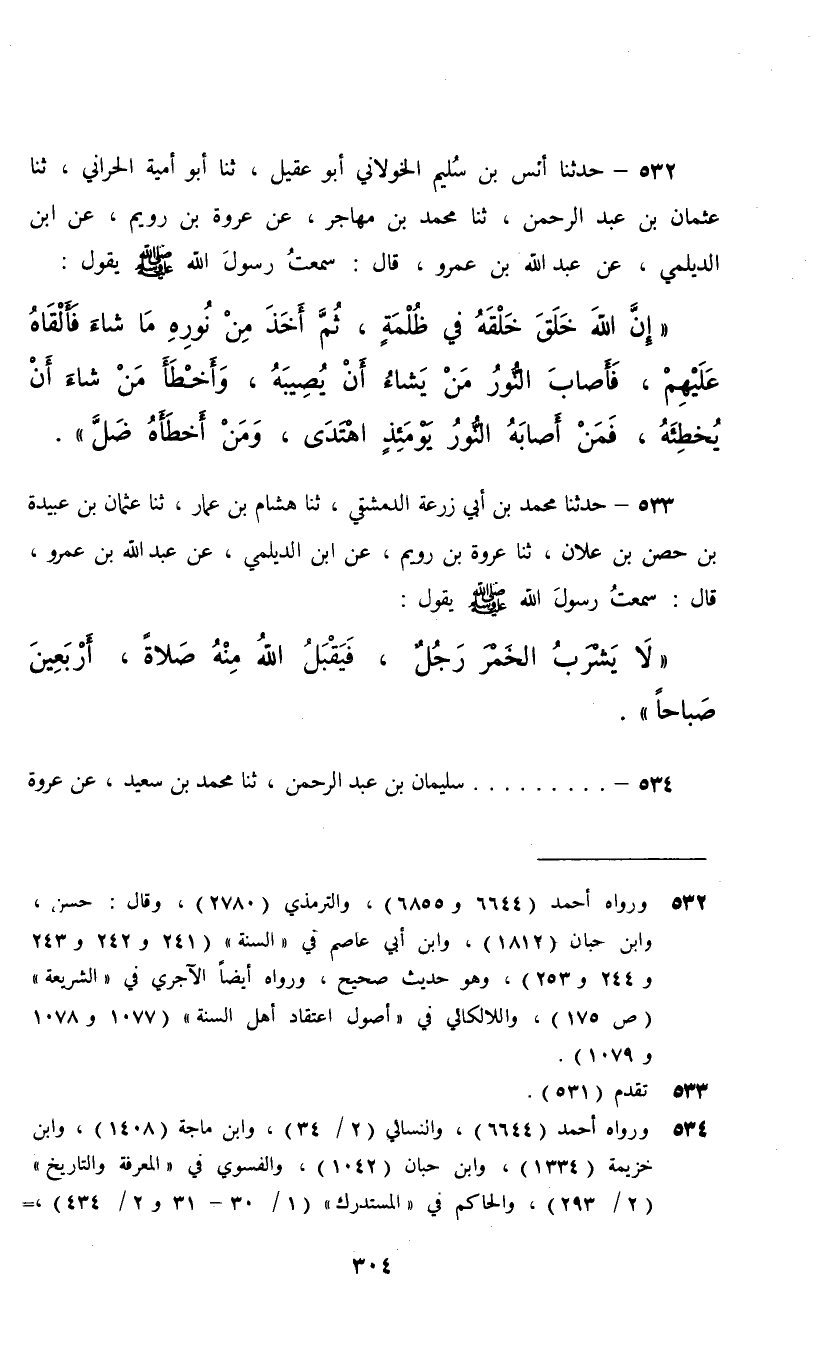 ٥٣٢ – حدثنا أنس بن سُليم الخولاني أبو عقيل ، ثنا أبو أمية الحراني ، ثنا
عثمان بن عبد الرحمن ، ثنا محمد بن مهاجر ، عن عروة بن رويم ، عن ابن
الديلمي ، عن عبد الله بن عمرو ، قال : سمعتُ رسولَ الله ﷺ يقول :
« إِنَّ اللهَ خَلَقَ خَلْقَهُ في ظُلْمَةٍ ، ثُمَّ أَخَذَ مِنْ نُورِهِ مَا شاءَ فَأَلْقَاهُ
عَلَيْهِمْ ، فَأَصابَ النُّورُ مَنْ يَشاءُ أَنْ يُصِيبَهُ ، وَأَخْطَأَ مَنْ شاءَ أَنْ
يُخطِئَهُ ، فَمَنْ أَصابَهُ النُّورُ يَوْمَئِذٍ اهْتَدَى ، وَمَنْ أَخطَأَهُ ضَلَّ » .
٥٣٣ – حدثنا محمد بن أبي زرعة الدمشقي ، ثنا هشام بن عمار ، ثنا عثمان بن عبيدة
بن حصن بن علان ، ثنا عروة بن رويم ، عن ابن الديلمي ، عن عبد الله بن عمرو ،
قال : سمعتُ رسولَ الله ﷺ يقول :
« لَا يَشْرَبُ الخَمْرَ رَجُلٌ ، فَيَقْبَلُ اللهُ مِنْهُ صَلاةً ، أَرْبَعِينَ
صَباحاً » .
٥٣٤ – . . . . . . . . . سليمان بن عبد الرحمن ، ثنا محمد بن سعيد ، عن عروة
٥٣٢ ورواه أحمد ( ٦٦٤٤ و ٦٨٥٥ ) ، والترمذي ( ٢٧٨٠ ) ، وقال : حسن ،
وابن حبان ( ١٨١٢ ) ، وابن أبي عاصم في « السنة » ( ٢٤١ و ٢٤٢ و ٢٤٣
و ٢٤٤ و ٢٥٣ ) ، وهو حديث صحيح ، ورواه أيضاً الآجري في « الشريعة »
( ص ١٧٥ ) ، واللالكالي في « أصول اعتقاد أهل السنة » ( ١٠٧٧ و ١٠٧٨
و ١٠٧٩ ) .
٥٣٣ تقدم ( ٥٣١ ) .
٥٣٤ ورواه أحمد ( ٦٦٤٤ ) ، والنسالي ( ٢ / ٣٤ ) ، وابن ماجة ( ١٤٠٨ ) ، وابن
خزيمة ( ١٣٣٤ ) ، وابن حبان ( ١٠٤٢ ) ، والفسوي في « المعرفة والتاريخ »
( ٢ / ٢٩٣ ) ، والحاكم في « المستدرك » ( ١ / ٣٠ – ٣١ و ٢ / ٤٣٤ ) ،=
٣٠٤